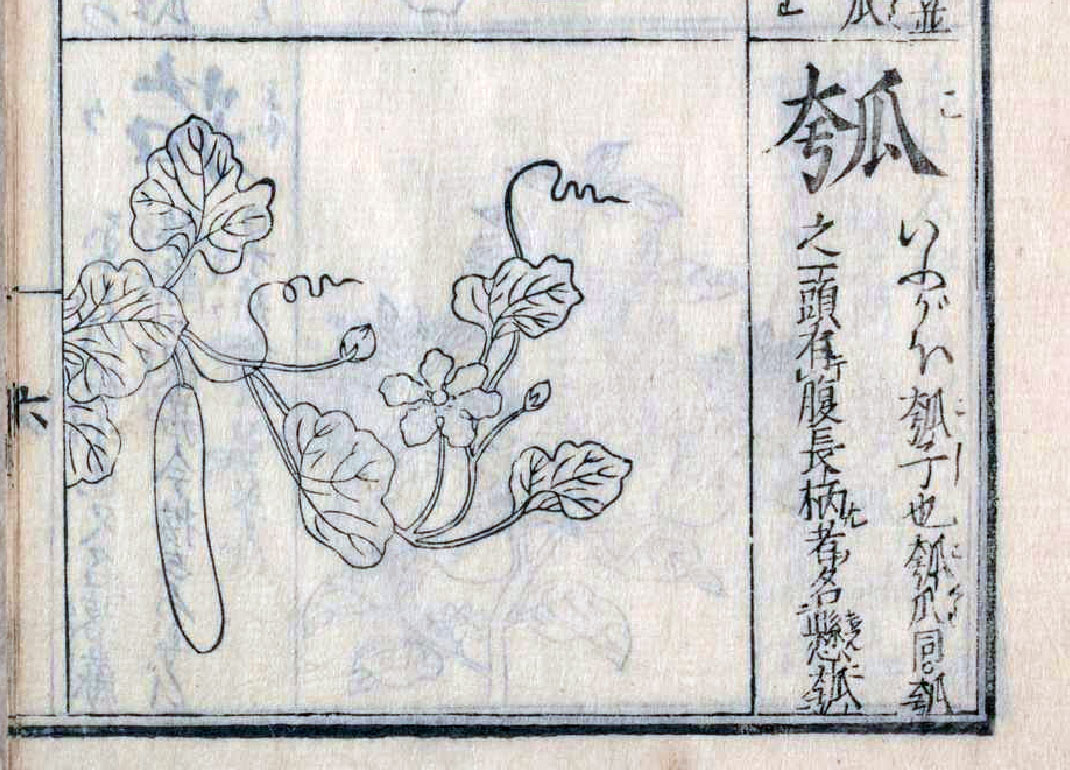 瓠
いふがほ瓠子也瓠瓜同。瓠
之一頭有腹長柄者名懸瓠